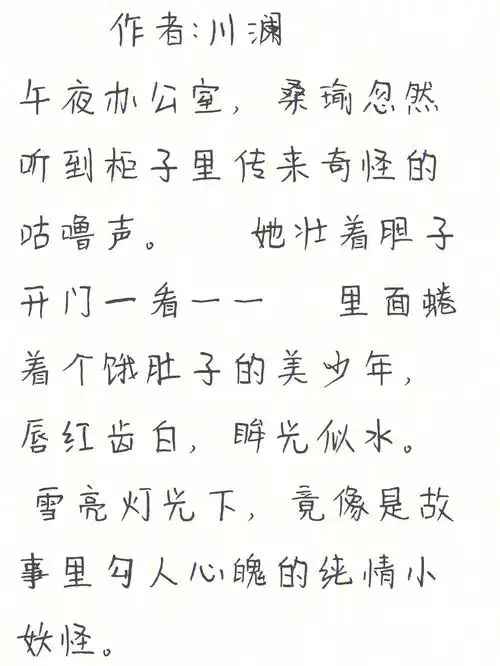 作者:川澜
午夜办公室，桑瑜忽然
听到柜子里传来奇怪的
咕噜声。 她壮着胆子
开门一看一一 里面蜷
着个饿肚子的美少年，
唇红齿白，眸光似水。
雪亮灯光下，竟像是故
事里勾人心魄的纯情小
妖怪。